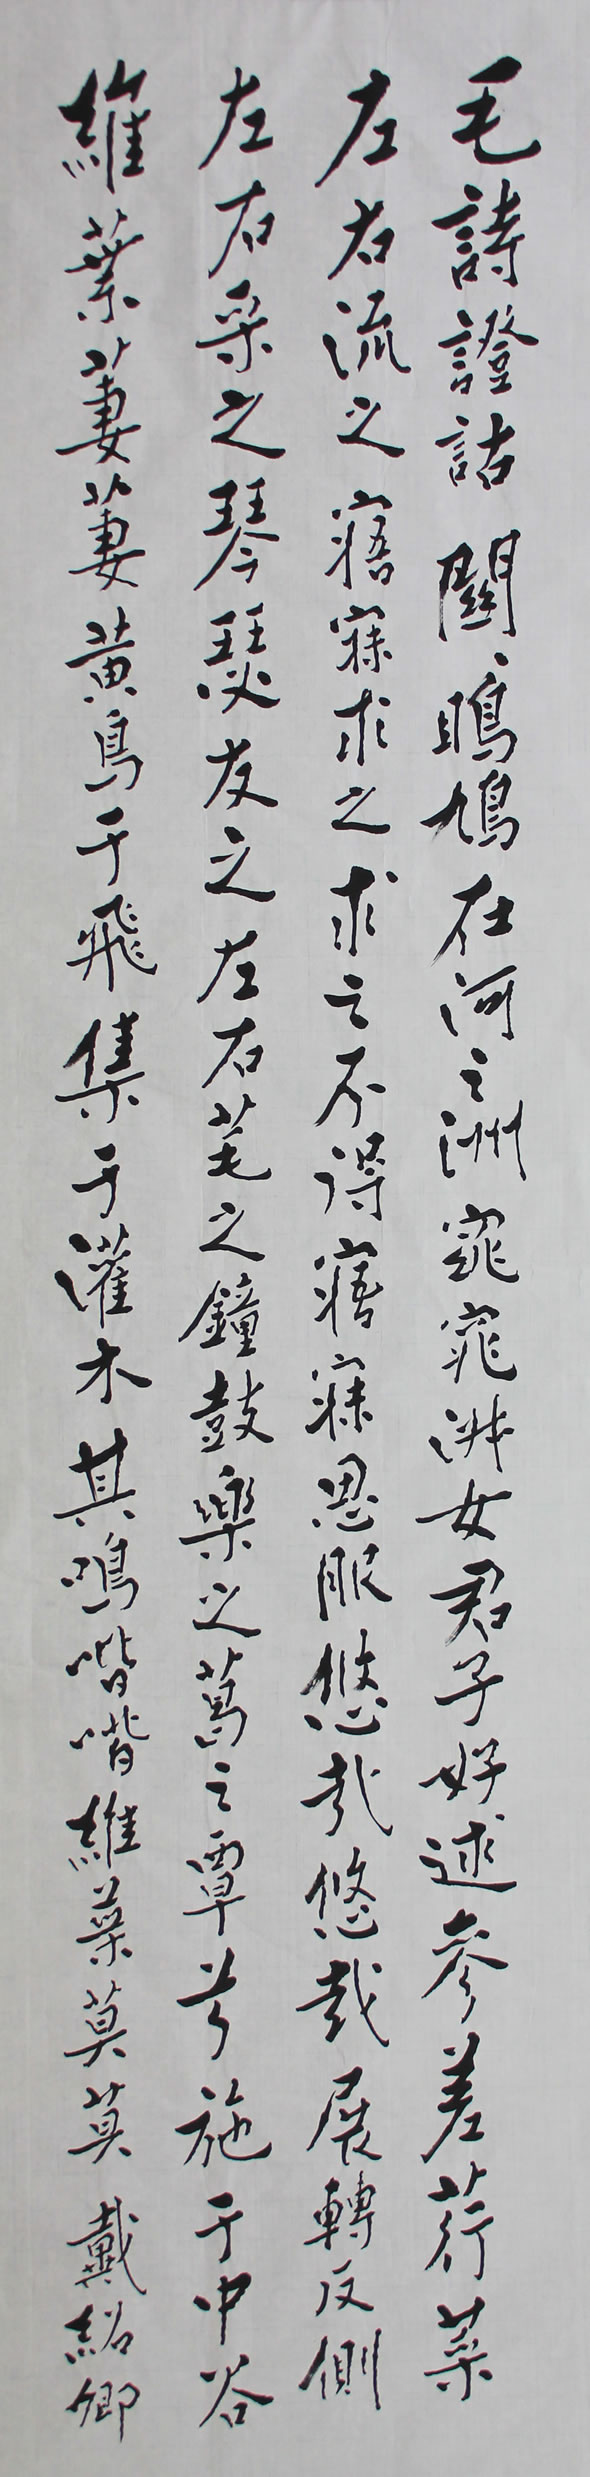 毛詩證詁 關〻鴡鳩在河之洲窕窕淑女君子好逑參差荇菜
左右流之寤寐求之求之不得寤寐思服悠哉悠哉展轉反側
左右采之琴瑟友之左右芼之鐘鼓樂之葛之覃兮施于中谷
維葉萋萋黃鳥于飛集于灌木其鳴喈喈維葉莫莫 戴紹卿